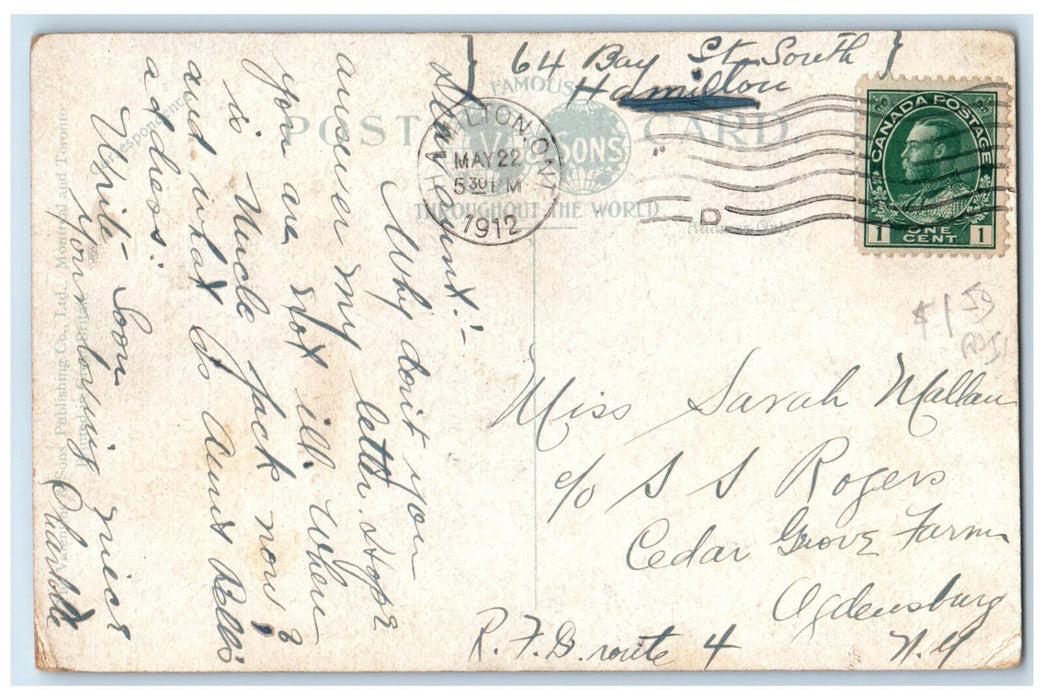 64 Bay St. South
Hamilton
FAMOUS
POST CARD
SONS
THROUGHOUT THE WORLD
HAMILTON, ONT.
MAY 22
5 30 PM
1912
D
CANADA POSTAGE
1 ONE CENT 1
$1 50
Dear Aunt:-
Why don't you
answer my letter. Hope
you are not ill. Where
is Uncle Jack now?
and what is Aunt Bell's
address.
Write Soon
Your loving niece
Correspondence
Valentine & Sons Publishing Co., Ltd., Montreal and Toronto
Printed in Great Britain
Miss Sarah Mallan
c/o S S Rogers
Cedar Grove Farm
Ogdensburg
R.F.D. route 4 N.Y